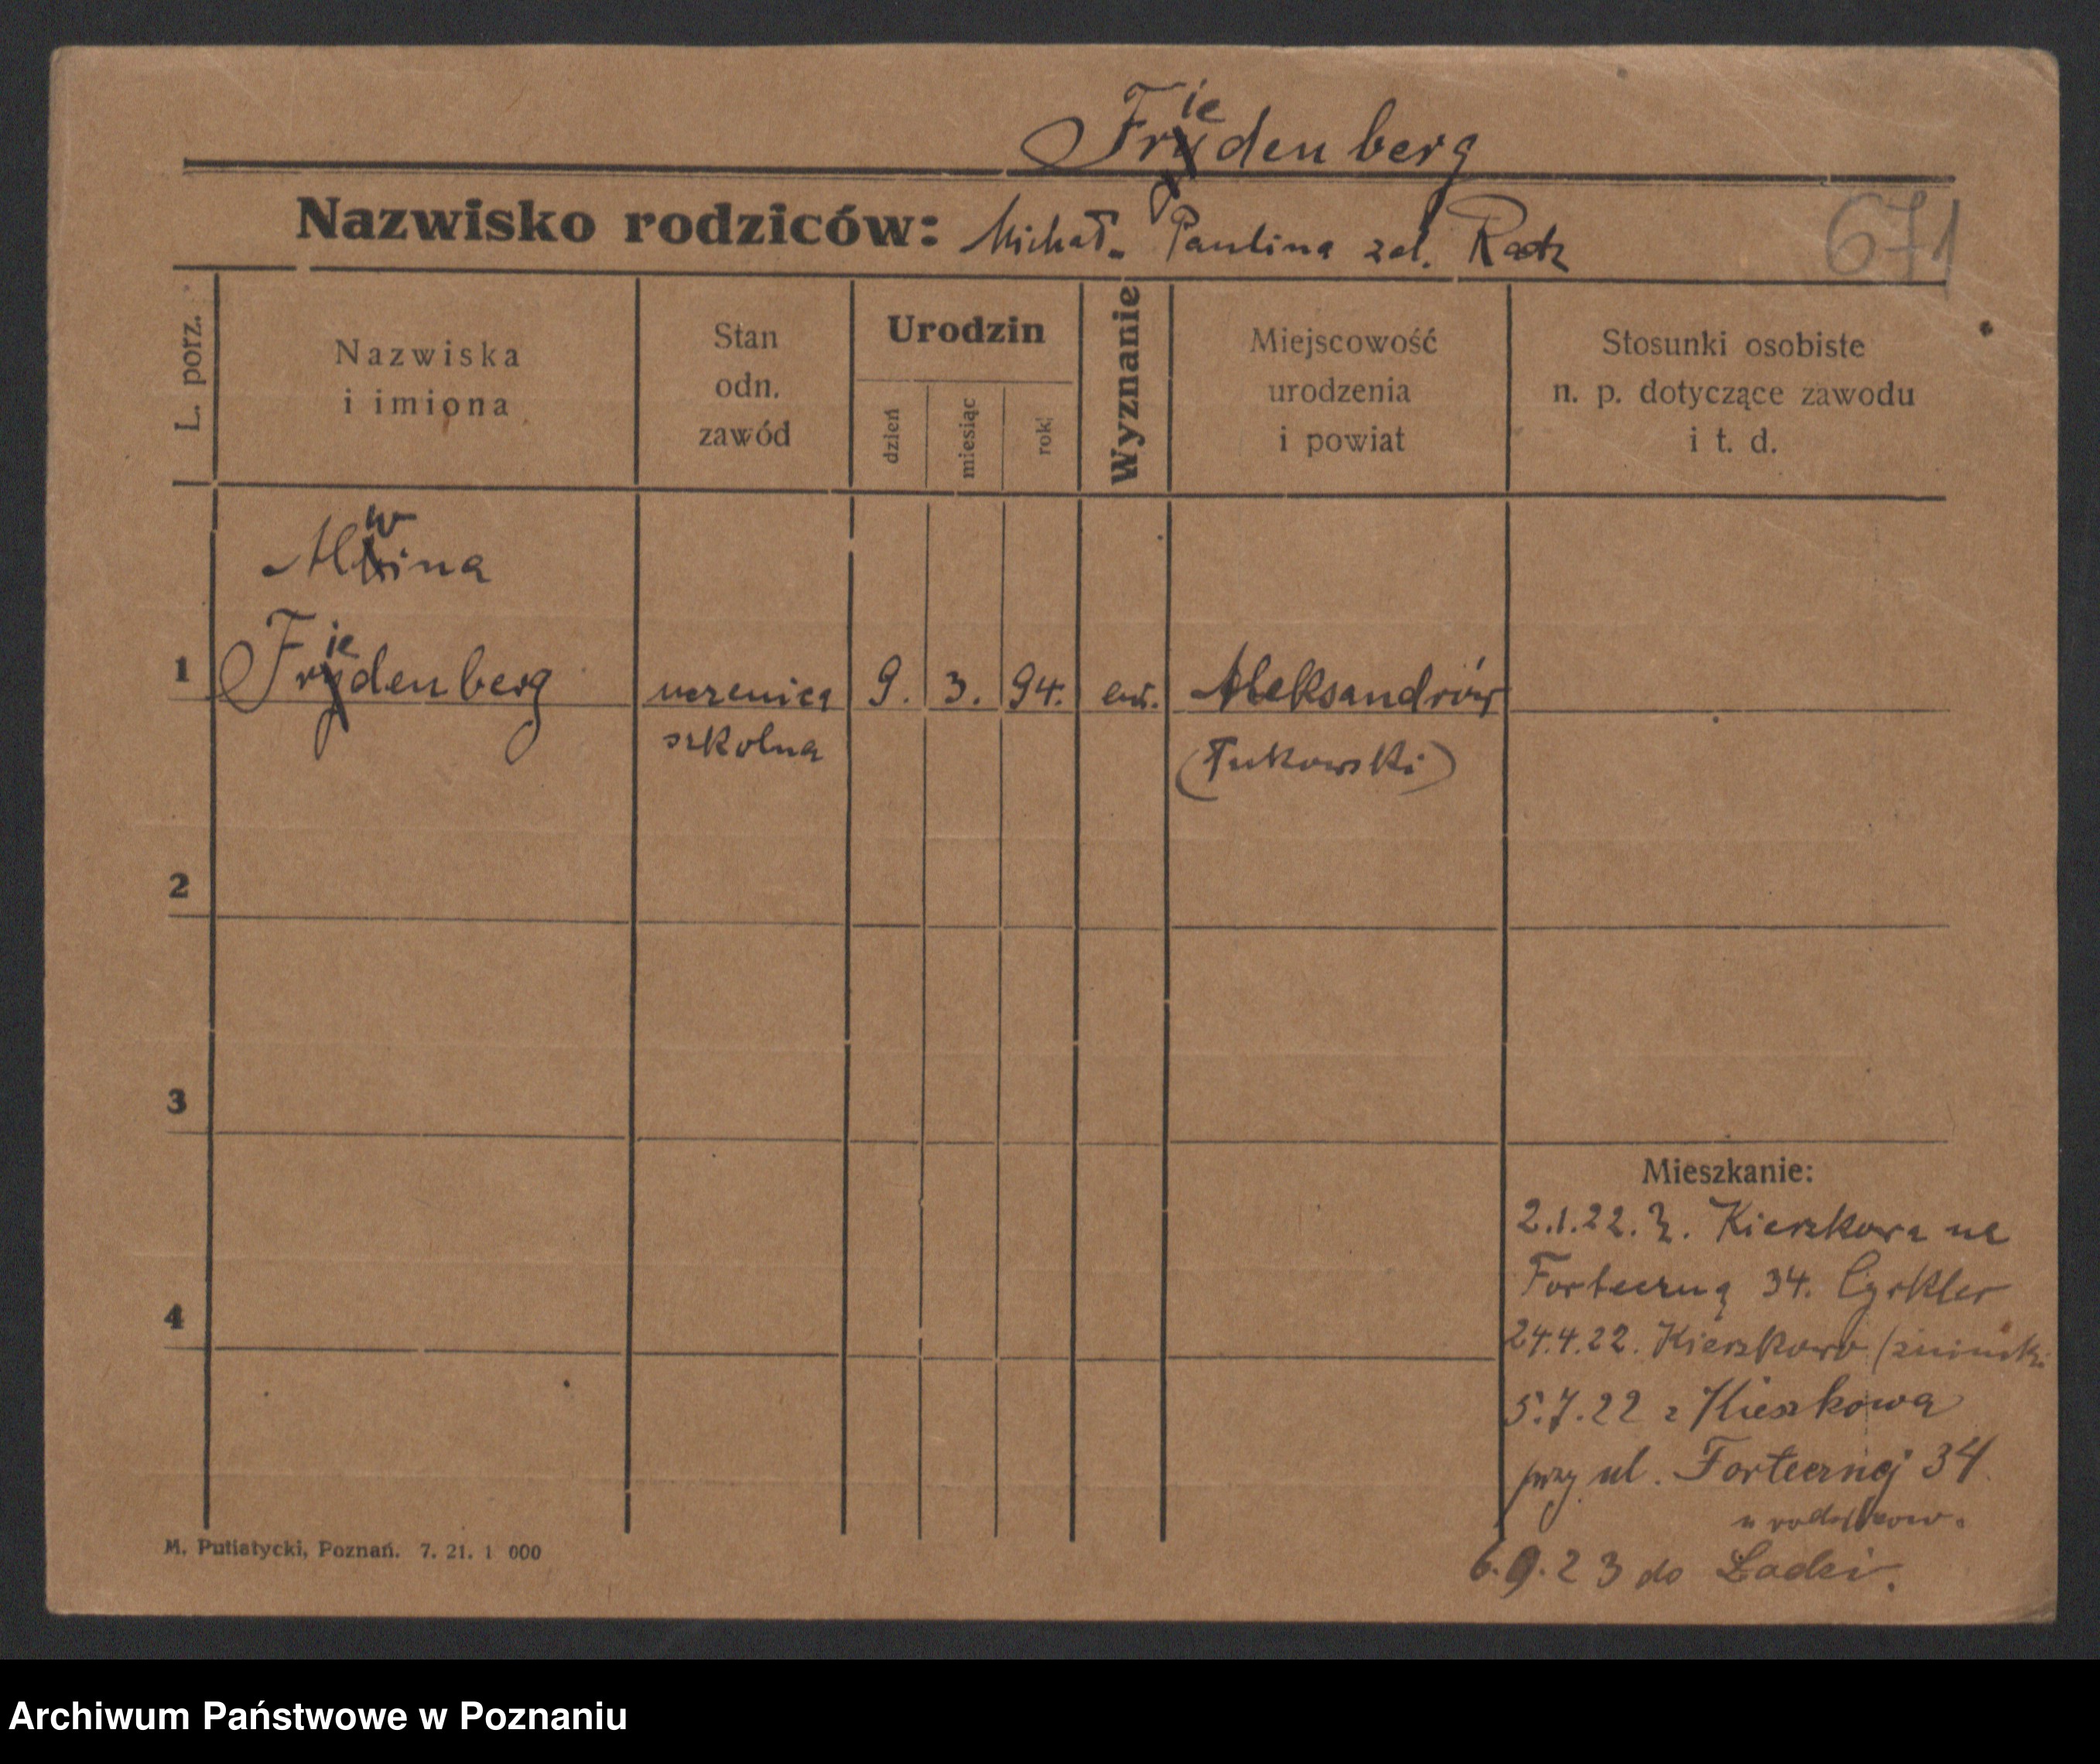 Friedenberg
Nazwisko rodziców: Michał. Paulina zd. Radz
671
L. porz.
Nazwiska
i imiona
Stan
odn.
zawód
Urodzin
dzień
miesiąc
rok
Wyznanie
Miejscowość
urodzenia
i powiat
Stosunki osobiste
n. p. dotyczące zawodu
i t. d.
Alwina
1 Friedenberg uczenica 9. 3. 94. ew. Aleksandrów
szkolna
2
3
4
Mieszkanie:
2.1.22. Z. Kierzkowa na
Forteczną 34. Cyrkler
24.4.22. Kierzkowo (żnińsk
5.7.22 z Kierzkowa
przy ul. Fortecznej 34
6.9.23 do Łodzi.
M. Putiatycki, Poznań. 7. 21. 1 000
Archiwum Państwowe w Poznaniu